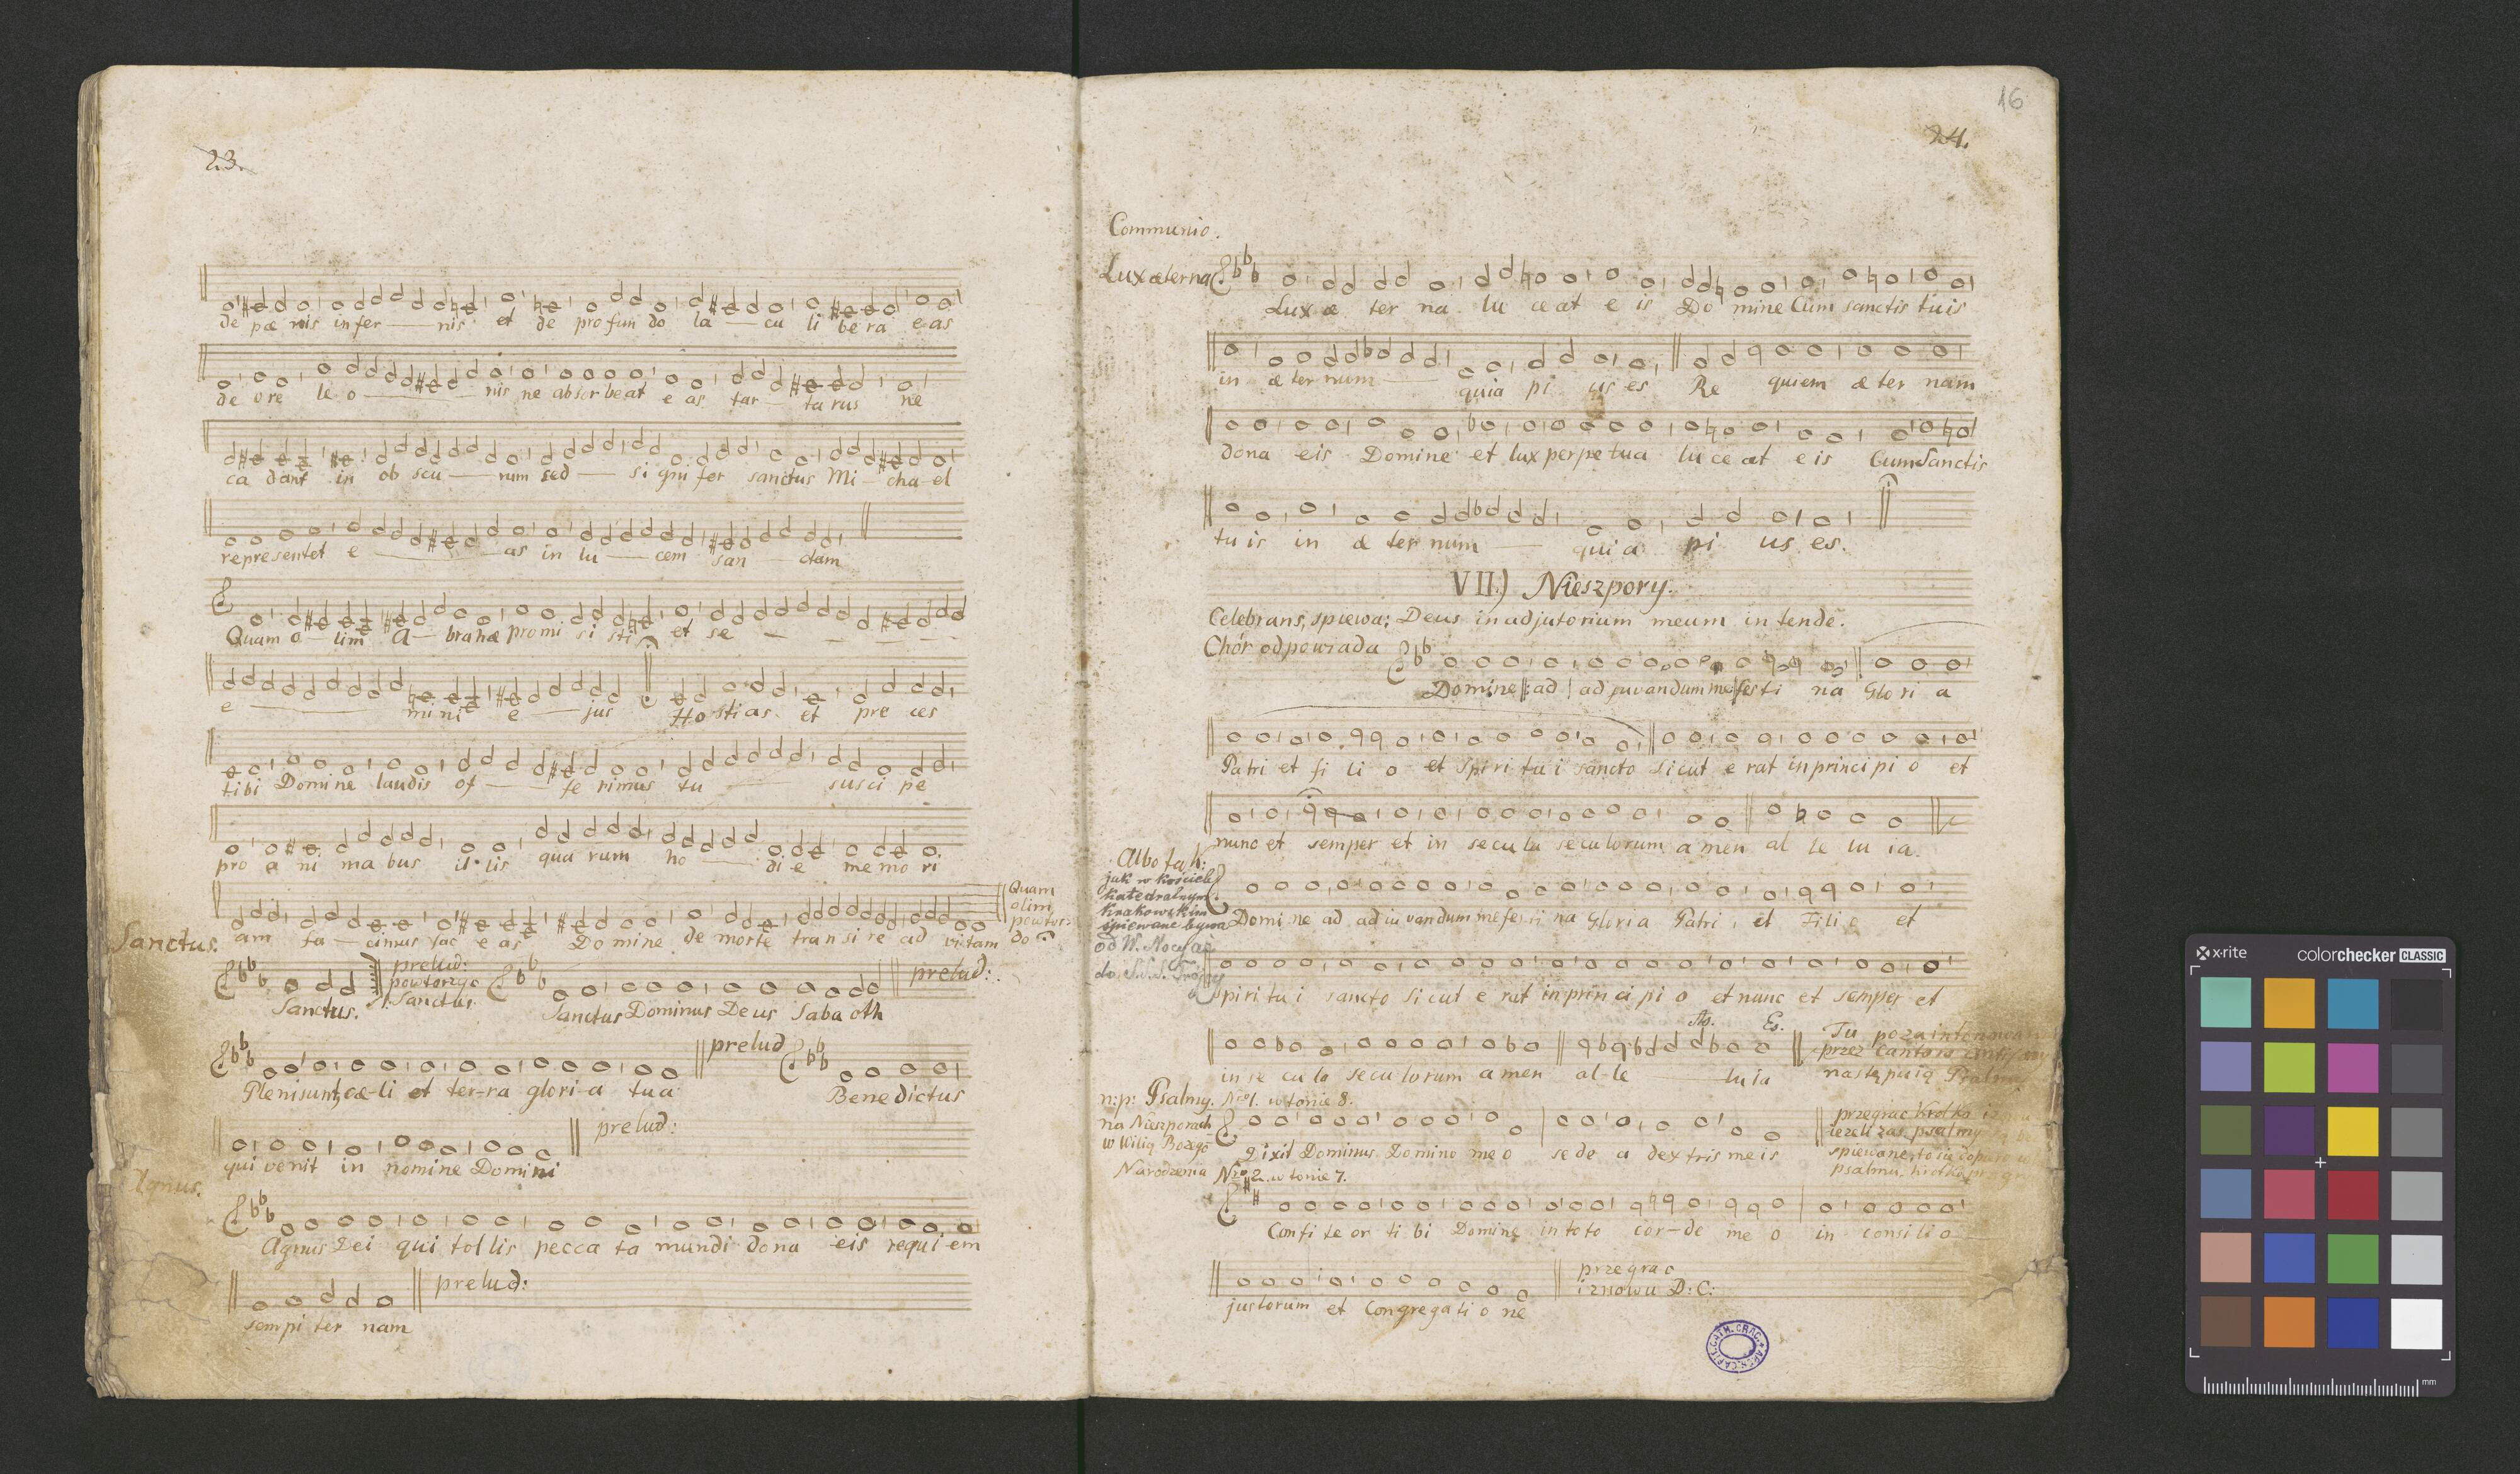 23.
de pæ nis infer — nis et de profun do la — cu li be ra eas
de ore le o — nis ne absorbeat e as tar — ta rus ne
ca dant in ob scu — rum sed — si gni fer sanctus Mi — cha-el
representet e — as in lu — cem san — ctam
Quam o — lim A — brahæ promi si sti et se — — — —
e — mini e — jus Hostias et pre ces
tibi Domine laudis of — fe rimus tu — susci pe
pro a ni ma bus il lis qua rum ho — di e me mo ri
am fa — cimus fac e as Domine de morte transi re ad vitam
Quam
olim
do
Sanctus.
Sanctus.
prelud:
powtorzyc
Sanctus.
Sanctus Dominus Deus Saba oth
prelud:
Plenisunt cæ-li et ter-ra glori-a tua
prelud
Benedictus
qui venit in nomine Domini
prelud:
Agnus.
Agnus Dei qui tollis pecca ta mundi dona eis requi-em
sempi ter nam
prelud:
16
24.
Communio.
Lux æterna
Lux æ ter na lu ce at e is Do mine Cum sanctis tuis
in æ ter num — quia pi us es Re quiem æ ter nam
dona eis Domine et lux perpe tua lu ce at e is Cum Sanctis
tu is in æ ter num — qui a pi us es.
VII.) Nieszpory.
Celebrans, spiewa: Deus in adjutorium meum in tende.
Chór odpowiada
Domine ad ad juvandum me festi na Glo ri a
Patri et fi li o et spiri tu i sancto sicut e rat in principi o et
nunc et semper et in secu la seculorum amen al le lu ia.
Albo tak:
jak w kosciele
Katedralnym
Krakowskim
spiewane bywa
od W. Nocy az
do S.S.S. Trojcy
Domi ne ad ad iu vandum me festi na Gloria Patri, et Filio et
Spiri tu i sancto sicut e rat in princi pi o et nunc et semper et
As. Es.
in se cu la secu lorum amen al-le — luia
Tu
przez Cantora
nastąpuią Psalmy
n:p: Psalmy. Nro 1. w tonie 8.
na Nieszporach
w Wilią Bożego
Narodzenia
Dixit Dominus Domino meo sede a dextris meis
przegrac krotko
iezeli zas psalmy
spiewane, to się
psalmu, krotko
Nro 2. w tonie 7.
Confi te or ti bi Domine in toto cor-de me o in consilio
justorum et Congrega ti o ne
przegrac
i znowu D: C:
x-rite
colorchecker CLASSIC
mm